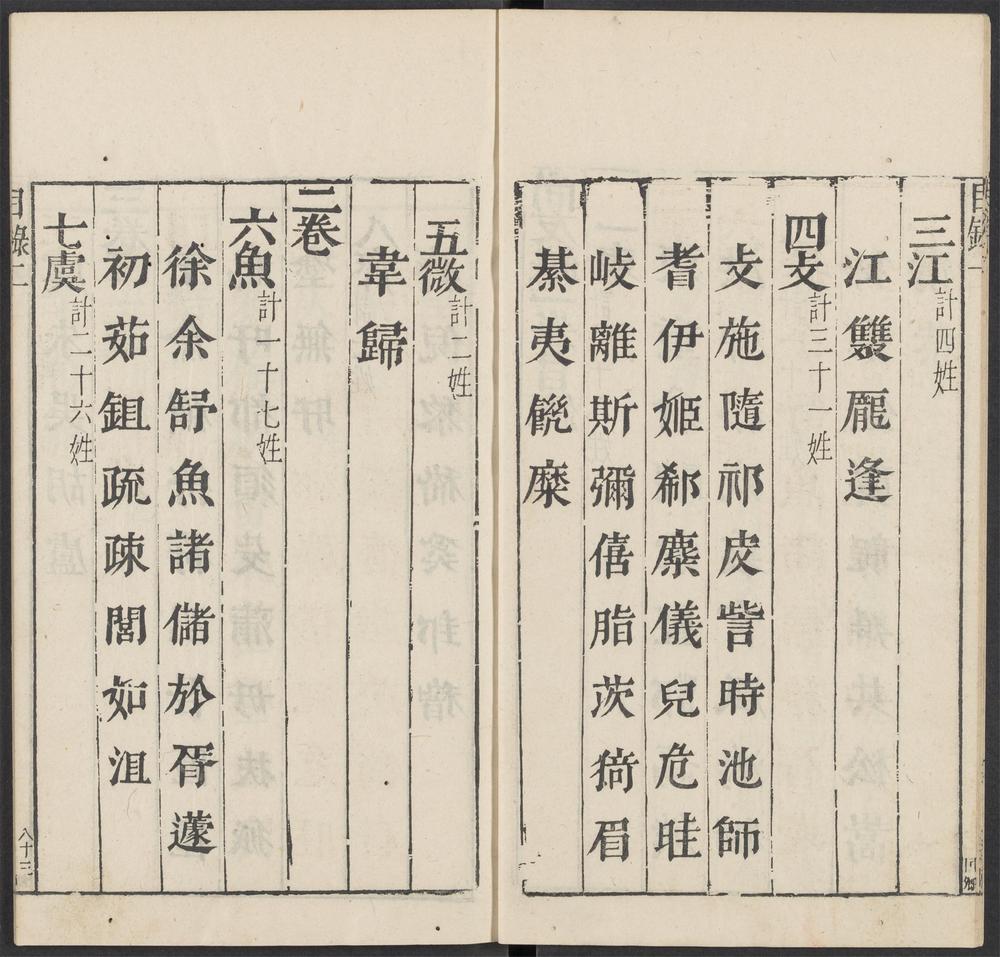 三江計四姓
江雙龐逢
四支計三十一姓
支施隨祁皮訾時池師
耆伊姬郗麋儀兒危眭
岐離斯彌僖脂茨猗眉
綦夷魕糜
五微計二姓
韋歸
二卷
六魚計一十七姓
徐余舒魚諸儲於胥蘧
初茹鉏疏疎閭如沮
七虞計二十六姓
目錄二
八十三